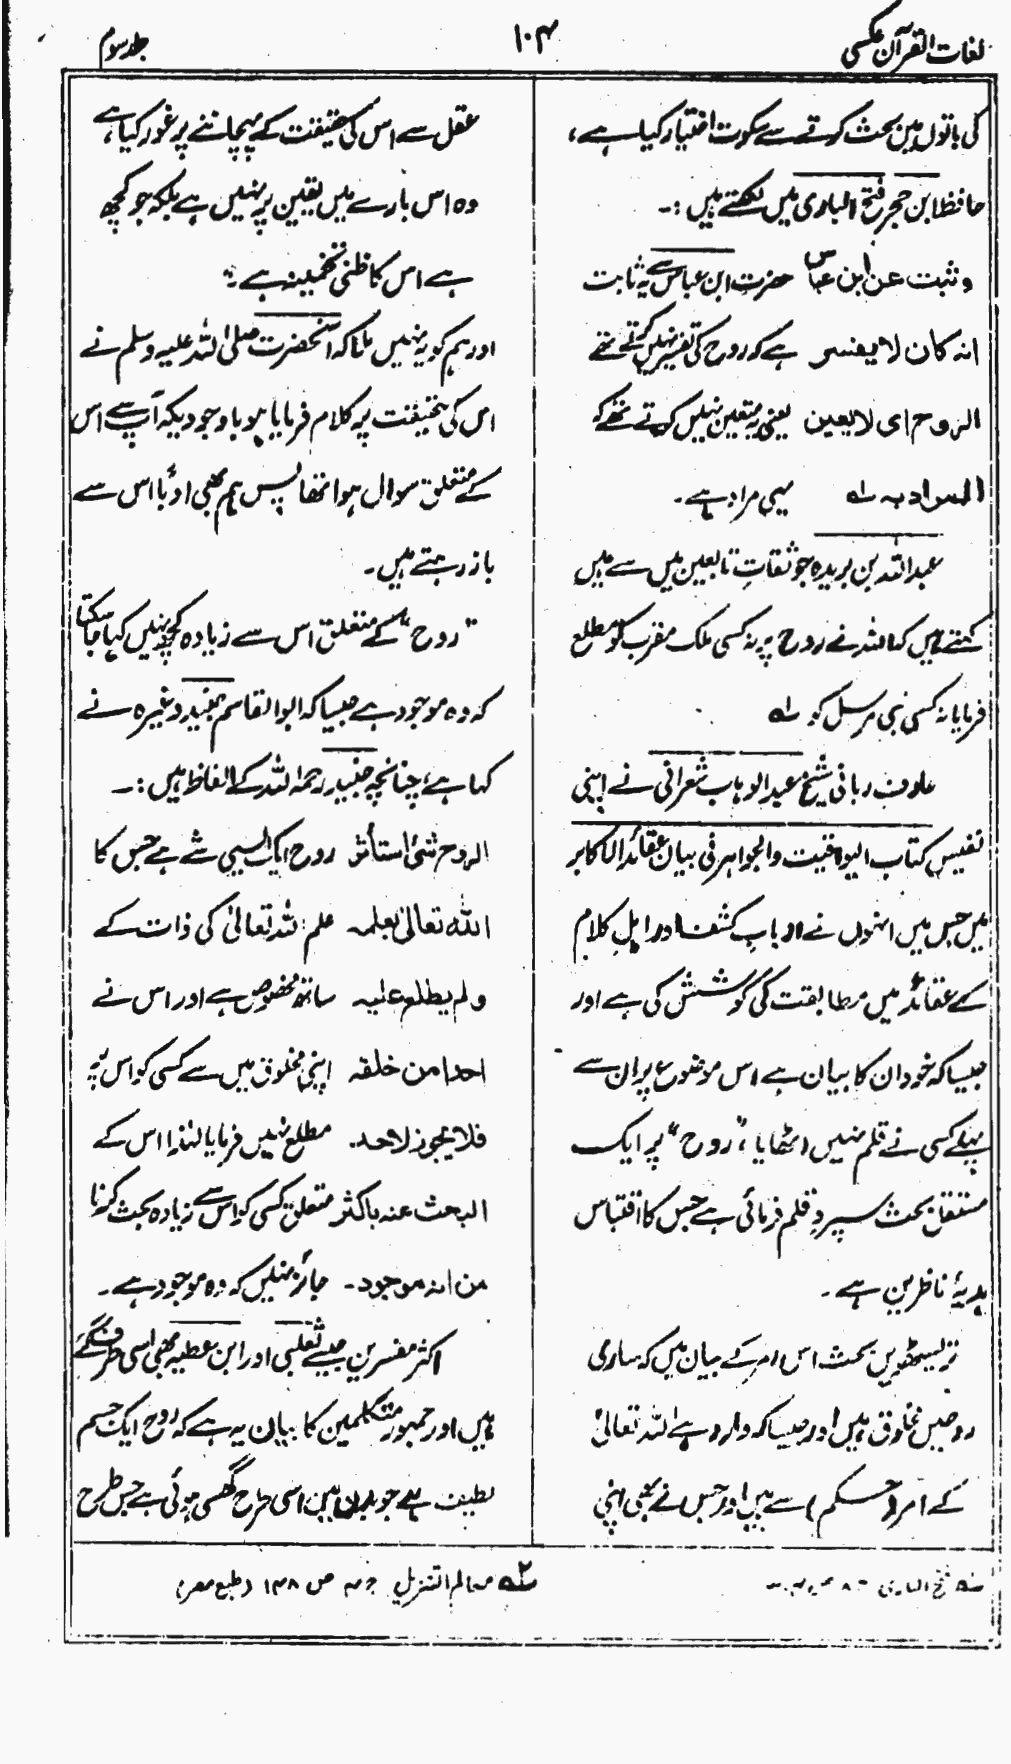 لغات القرآن عکسی
۱۰۴
جلد سوم
کی باتوں میں بحث کرنے سے سکوت اختیار کیا ہے،
حافظ ابن حجر فتح الباری میں لکھتے ہیں :۔
وثبت عن ابن عباس حضرت ابن عباس سے یہ ثابت
انه کان لا یفسر ہے کہ روح کی تفسیر نہیں کرتے تھے
الروح ای لا یعین یعنی یہ متعین نہیں کرتے تھے کہ
المراد به ؎۱ یہی مراد ہے۔
عبداللہ بن بریدہ جو ثقات تابعین میں سے ہیں
کہتے ہیں کہ اللہ نے روح پر نہ کسی ملک مقرب کو مطلع
فرمایا نہ کسی نبی مرسل کو ؎۲
عارف ربانی شیخ عبدالوہاب شعرانی نے اپنی
نفیس کتاب الیواقیت والجواہر فی بیان عقائد الاکابر
میں جس میں انہوں نے ارباب کشف اور اہل کلام
کے عقائد میں مطابقت کی کوشش کی ہے اور
جیسا کہ خود ان کا بیان ہے اس موضوع پر ان سے
پہلے کسی نے قلم نہیں اٹھایا، "روح" پر ایک
مستقل بحث سپرد قلم فرمائی ہے جس کا اقتباس
ہدیۂ ناظرین ہے۔
تریسٹھویں بحث اس امر کے بیان میں کہ ساری
روحیں مخلوق ہیں اور جیسا کہ وارد ہے اللہ تعالیٰ
کے امر (حکم) سے ہیں اور جس نے بھی اپنی
عقل سے اس کی حقیقت کے پہچاننے پر غور کیا ہے
وہ اس بارے میں یقین پر نہیں ہے بلکہ جو کچھ
ہے اس کا ظنی تخمینہ ہے"
اور ہم کو یہ نہیں ملا کہ آنحضرت صلی اللہ علیہ وسلم نے
اس کی حقیقت پر کلام فرمایا ہو باوجودیکہ آپ سے اس
کے متعلق سوال ہوا تھا پس ہم بھی ادباً اس سے
باز رہتے ہیں۔
"روح" کے متعلق اس سے زیادہ کچھ نہیں کہا جا سکتا
کہ وہ موجود ہے جیسا کہ ابوالقاسم جنید وغیرہ نے
کہا ہے، چنانچہ جنید رحمہ اللہ کے الفاظ ہیں :۔
الروح شئ استأثر روح ایک ایسی شے ہے جس کا
الله تعالیٰ بعلمه علم اللہ تعالیٰ کی ذات کے
ولم یطلع علیه ساتھ مخصوص ہے اور اس نے
احدا من خلقه اپنی مخلوق میں سے کسی کو اس پر
فلا یجوز لاحد مطلع نہیں فرمایا لہٰذا اس کے
البحث عنه باکثر متعلق کسی کو اس سے زیادہ بحث کرنا
من انه موجود۔ جائز نہیں کہ وہ موجود ہے۔
اکثر مفسرین جیسے ثعلبی اور ابن عطیہ بھی اسی طرف گئے
ہیں اور جمہور متکلمین کا بیان یہ ہے کہ روح ایک جسم
لطیف ہے جو بدن میں اسی طرح گھسی ہوئی ہے جس طرح
؎۱ فتح الباری ج ۸
؎۲ معالم التنزیل ج ۴ ص ۱۴۸ (طبع مصر)